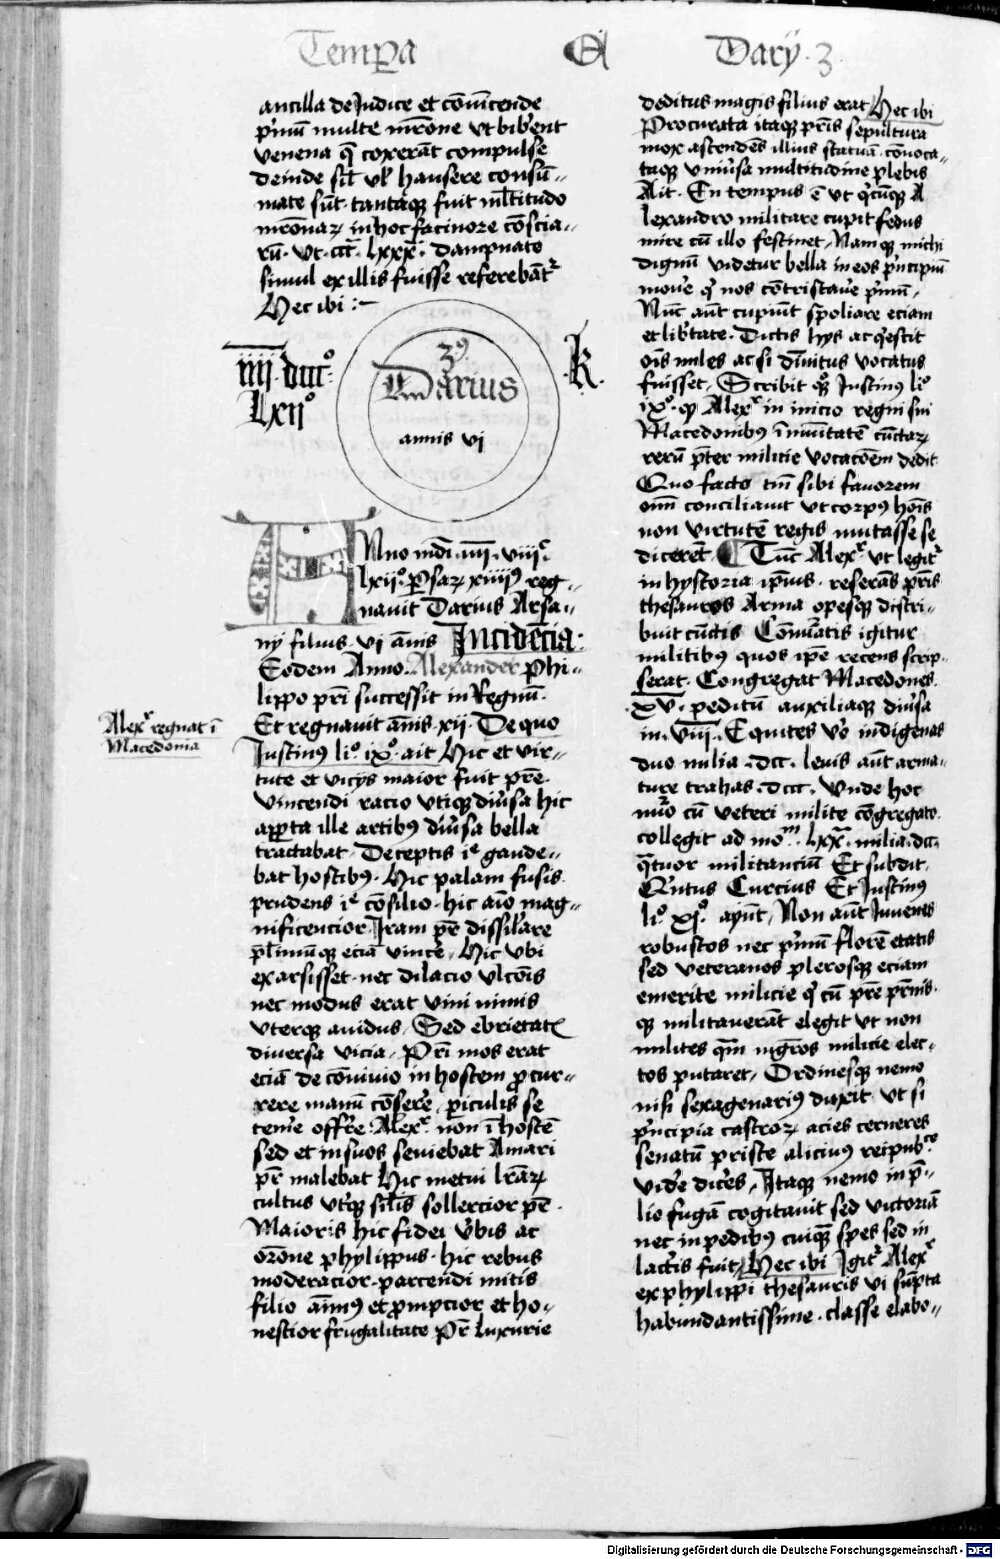 Tempa
Darij · 3
ancilla de Judice et cōuicende
p'mū multe mr̄one vt biberent
venena q̄ coxerāt compulse
deinde sil' vl' hausere consū=
mate sūt· tantaq̨ fuit ml̄titudo
mr̄onaꝝ in hoc facinore cōscia=
rū· vt· cū· lxxx· dampnato
simul ex illis fuisse referebāt᷑
Hec ibi :~
iiij duc°
Lxij°
39
Darius
annis vj
K.
Anno mūdi· iiij· viij^c·
lxij°· Psaꝝ xiiij9 reg=
nauit Darius Arsa=
nij filius· vi ānis Incidēcia:
Eodem Anno· Alexander Phi=
lippo pr̄i successit in Regnū·
Et regnauit ānis· xij· De quo
Justin9 li°· ix°· ait Hic et vir=
tute et vicijs maior fuit pr̄e·
Vincendi racio vtiq̨ diu'sa hic
apperta ille artib9 diu'sa bella
tractabat· Deceptis ie gaude=
bat hostib9· Hic palam fusis·
prudens ie cōsilio· hic aīo mag=
nificencior· Iram pr̄ dissil'are
pl'imūq̨ eciā vince'· Hic vbi
exarsisset· nec dilacio vlcōis
nec modus erat vini nimis
vterq̨ auidus· Sed ebrietatꝭ
diuersa vicia· Pr̄i mos erat
eciā de cōuiuio in hostem ꝓcur=
rere manū cōsere'· ꝑiculis se
teme' offr̄e· Alex^r· non ī hostē
sed et in suos seuiebat Amari
pr̄ malebat Hic metui lr̄aꝝ
cultus vtq̨ sil'is sollercior pr̄e·
Maioris hic fidei v'bis ac
or̄one phylippus· hic rebus
moderacior· parcendi mitis
filio aīm9 et ꝓmpcior et ho=
nestior frugalitate Pr̄ Luxurie
Alex^r regnat ī
Macedonia
deditus magis filius erat Hec ibi
Procurata itaq̨ pr̄is sepultura
mox ascendēs illius statuā· cōuoca=
taq̨ vniu'sa multitudine plebis
Ait· En tempus ē vt q'cūq̨ A
lexandro militare cupit fedus
mire cū illo festinet, Namq̨ michi
dignū videtur bella in eos p'ncipiū
moue' q' nos cōtristaue' p'mū,
Nūc aūt cupiūt spoliare eciam
et lib'tate· Dictis hijs ac q'escit
oīs miles ac si diuitus vocatus
fuisset, Scribit q̨ Justin9 li°
ix°· q' Alex^r in inicio regni sui
Macedonib9 īmunitatē cūctaꝝ
rerū pr̄ter milicie vocacōem dedit
Quo facto tm̄ sibi fauorem
oīm conciliauit vt corp9 hoīs
non virtutē regis mutasse se
dicerēt ¶ Tūc Alex^r vt legit᷑
in hystoria ipius· reserās pr̄is
thesauros Arma opesq̨ distri=
buit cūctis Cōnu'atis igitur
militib9 quos ipē recens scrip=
serat· Congregat Macedones·
·xv· peditū auxiliaq̨ diu'sa
in· viij· Equites v'o indigenas
duo milia· dcc· leuis aūt arma=
ture trahas· dccc· vnde hoc
nu'o cū veteri milite cōgregato·
collegit ad mo^m· lxx· milia· dcc·
q̄tuor militanciū Et subdit·
Q'ntus Curcius Et Justin9
li°· xj°· ayūt, Non aūt Juuenes
robustos nec p'mū florē etatis
sed veteranos plerosq̨ eciam
emerite milicie q' cū pr̄e pr̄nis·
q̨ militauerāt elegit vt non
milites q̄m mgr̄os milicie elec=
tos putaret, Ordinesq̨ nemo
nisi sexagenari9 duxit vt si
p'ncipia castroꝝ acies cerneres
senatū priste alicui9 reipub^ce
vide' dic'es, Itaq̨ nemo in p̄=
lio fugā cogitauit sed victoriā
nec in pedib9 cuiq̨ spes sed in
lactis fuit, Hec ibi Igit᷑ Alex^r
ex phylippi thesauris vi sūpta
habundantissime· classe elabo=
Digitalisierung gefördert durch die Deutsche Forschungsgemeinschaft - DFG